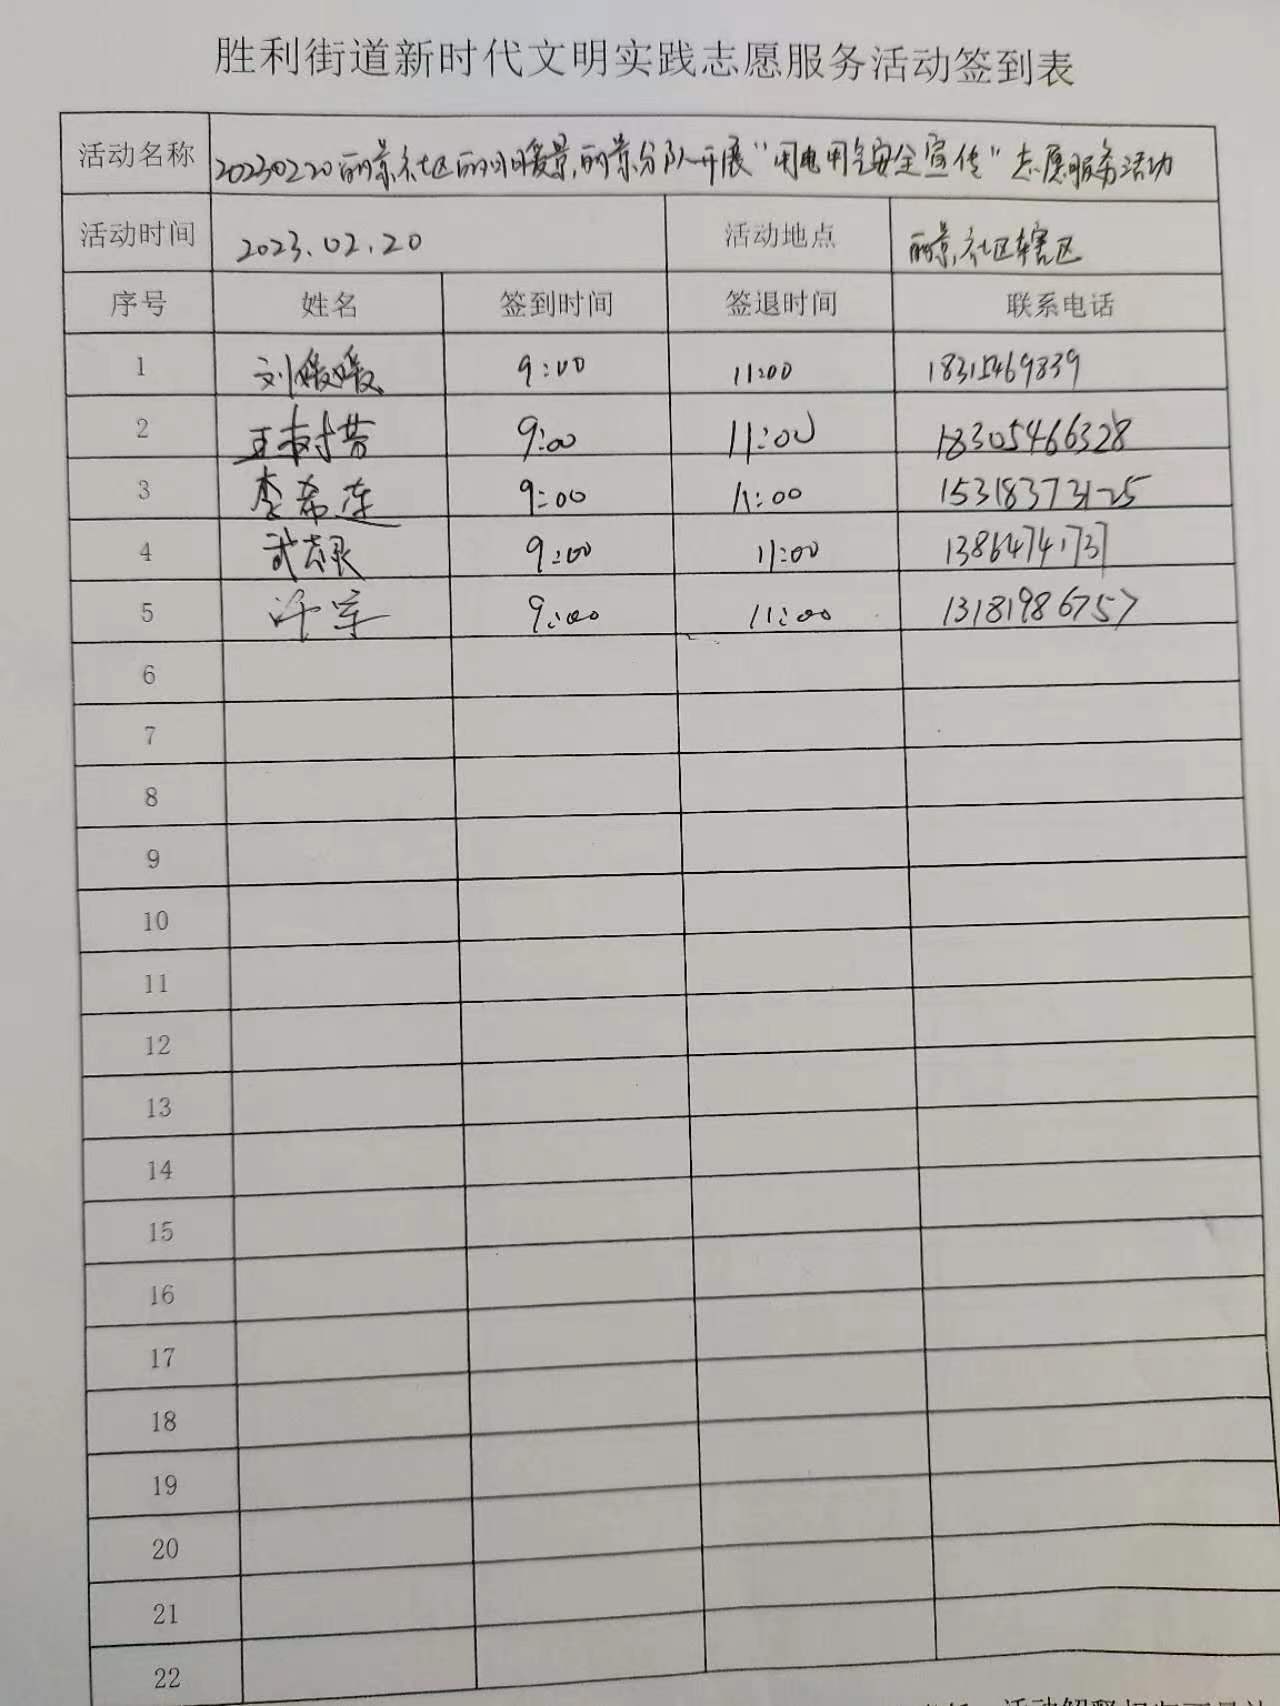 胜利街道新时代文明实践志愿服务活动签到表
活动名称 20230220丽景社区丽阳暖景,丽景分队开展"用电用气安全宣传"志愿服务活动
活动时间 2023.02.20 活动地点 丽景社区辖区
序号 姓名 签到时间 签退时间 联系电话
1 刘媛媛 9:00 11:00 18315469839
2 王树芳 9:00 11:00 18305466328
3 李希莲 9:00 11:00 15318373125
4 9:00 11:00 13864741737
5 许军 9:00 11:00 13181986757
6
7
8
9
10
11
12
13
14
15
16
17
18
19
20
21
22